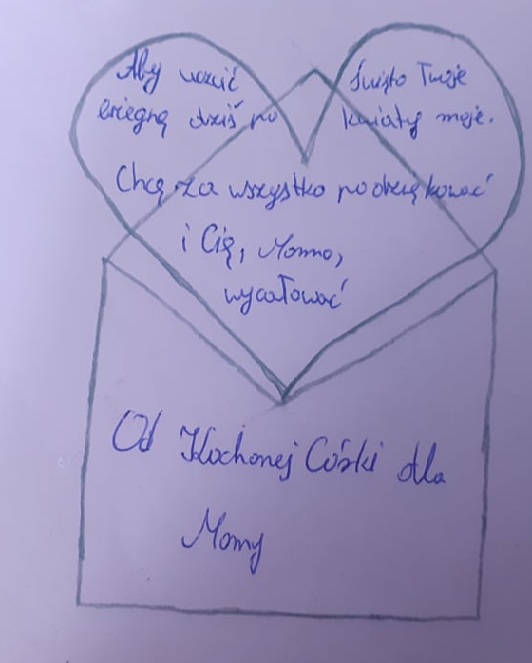 Aby uczcić Święto Twoje
biegnę dziś po kwiaty moje.
Chcę za wszystko podziękować
i Cię, Mamo,
wycałować
Od Kochanej Córki dla
Mamy